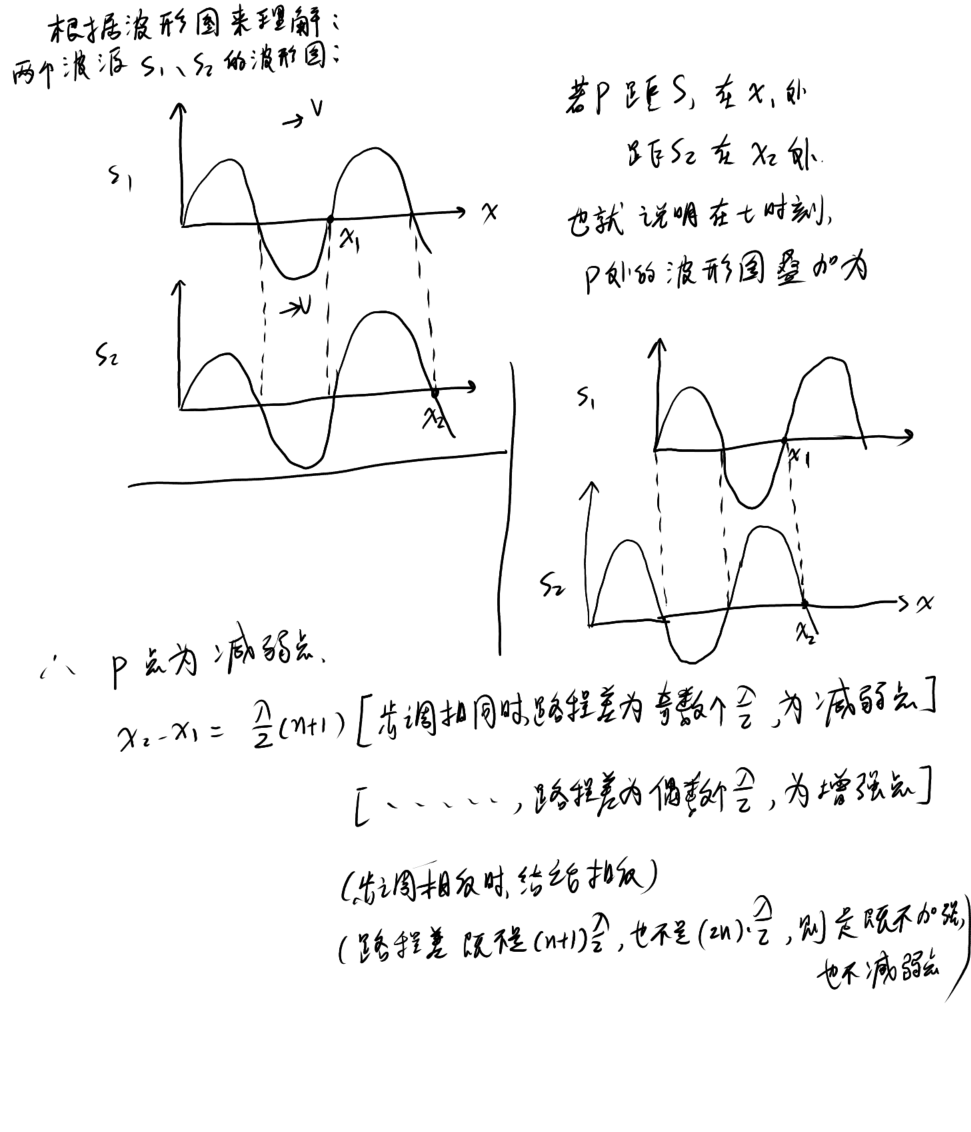 根据波形图来理解:
两个波源 S₁、S₂ 的波形图:
→ V
S₁
x
x₁
→V
S₂
x₂
若P距S₁在x₁处
距S₂在x₂处.
也就说明在t时刻,
P处的波形图叠加为
S₁
x₁
S₂
x
x₂
∴ P点为减弱点.
x₂-x₁= λ/2(n+1) [步调相同时,路程差为奇数个λ/2,为减弱点]
[、、、、、,路程差为偶数个λ/2,为增强点]
(步调相反时,结论相反)
(路程差既不是(n+1)λ/2,也不是(2n)·λ/2,则是既不加强,
也不减弱点)